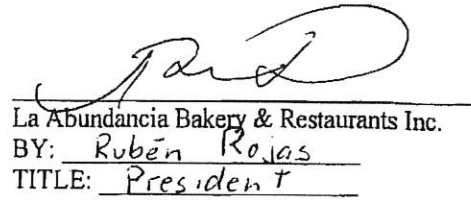 La Abundancia Bakery & Restaurants Inc.
BY: Rubén Rojas
TITLE: President